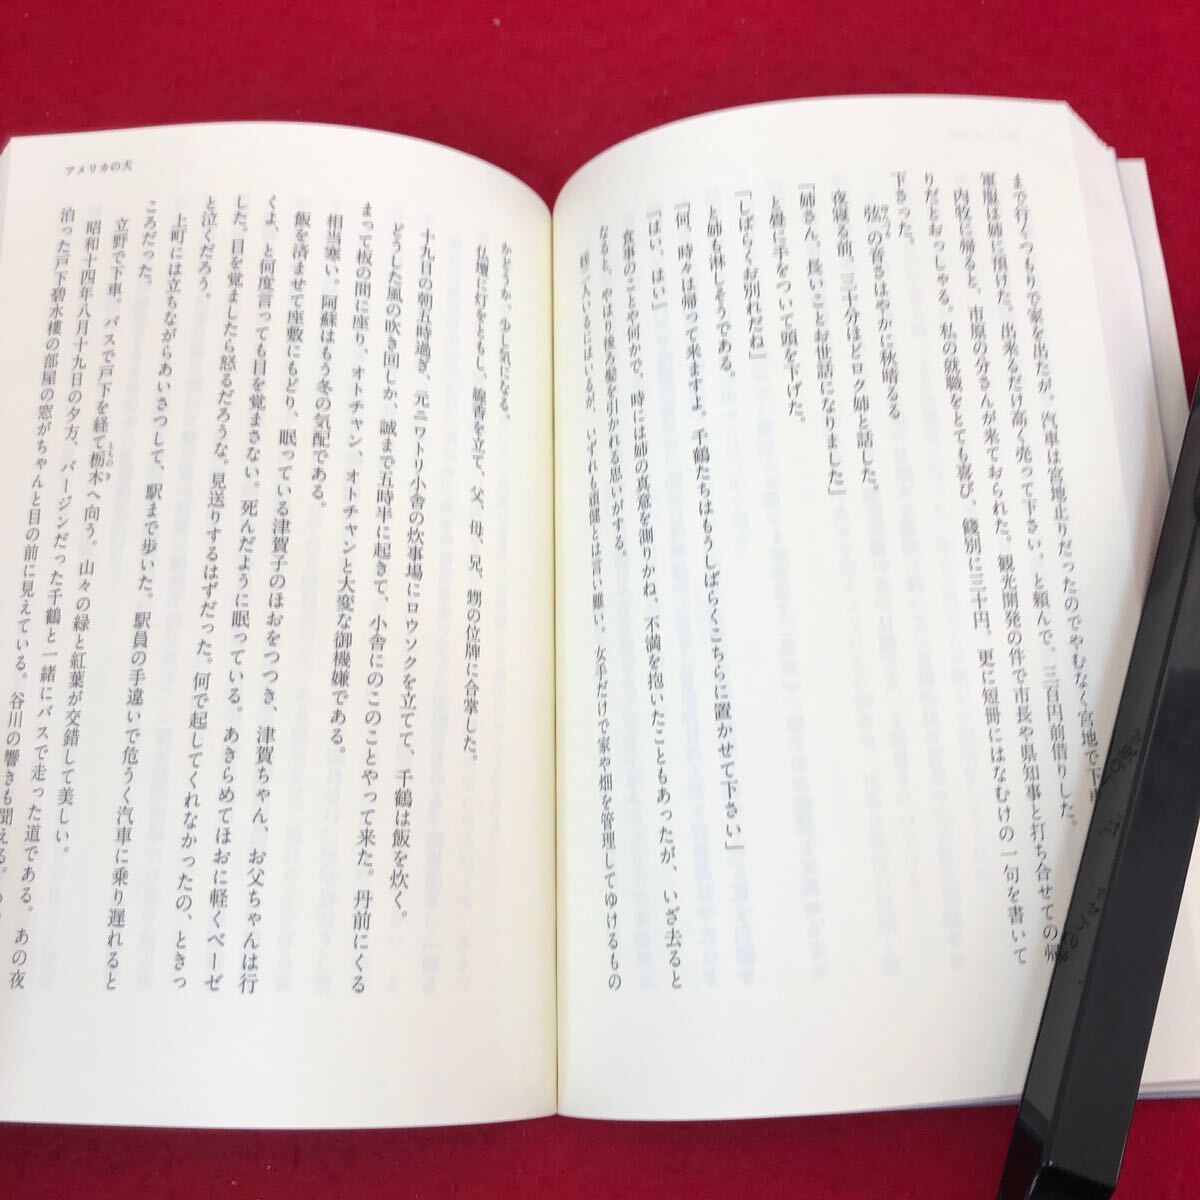 まで行くつもりで家を出たが、汽車は宮地止りだったのでやむなく宮地で下車
軍服は姉に預けた。出来るだけ高く売って下さい、と頼んで、三百円前借りした。
内牧に帰ると、市原の分さんが来ておられた。観光開発の件で市長や県知事と打ち合せての帰
りだとおっしゃる。私の就職をとても喜び、餞別に三十円、更に短冊にはなむけの一句を書いて
下さった。
弦の音さはやかに秋晴るる
夜寝る前、三十分ほどロク姉と話した。
『姉さん、長いことお世話になりました』
と畳に手をついて頭を下げた。
『しばらくお別れだね』
と姉も淋しそうである。
『何、時々は帰って来ますよ。千鶴たちはもうしばらくこちらに置かせて下さい』
『はい、はい』
食事のことや何かで、時には姉の真意を測りかね、不満を抱いたこともあったが、いざ去ると
なると、やはり後ろ髪を引かれる思いがする。
甥一人いるにはいるが、いずれも頑健とは言い難い。女手だけで家や畑を管理してゆけるもの
アメリカの犬
かどうか、少し気になる。
仏壇に灯をともし、線香を立て、父、母、兄、甥の位牌に合掌した。
十九日の朝五時過ぎ、元ニワトリ小舎の炊事場にロウソクを立てて、千鶴は飯を炊く。
どうした風の吹き回しか、誠まで五時半に起きて、小舎にのこのことやって来た。丹前にくる
まって板の間に座り、オトチャン、オトチャンと大変な御機嫌である。
相当寒い。阿蘇はもう冬の気配である。
飯を済ませて座敷にもどり、眠っている津賀子のほおをつつき、津賀ちゃん、お父ちゃんは行
くよ、と何度言っても目を覚まさない。死んだように眠っている。あきらめてほおに軽くベーゼ
した。目を覚ましたら怒るだろうな。見送りするはずだった。何で起してくれなかったの、ときっ
と泣くだろう。
上町には立ちながらあいさつして、駅まで歩いた。駅員の手違いで危うく汽車に乗り遅れると
ころだった。
立野で下車。バスで戸下を経て栃木へ向う。山々の緑と紅葉が交錯して美しい。
昭和十四年八月十九日の夕方、バージンだった千鶴と一緒にバスで走った道である。あの夜
泊った戸下碧水楼の部屋の窓がちゃんと目の前に見えている。谷川の響きも聞える。